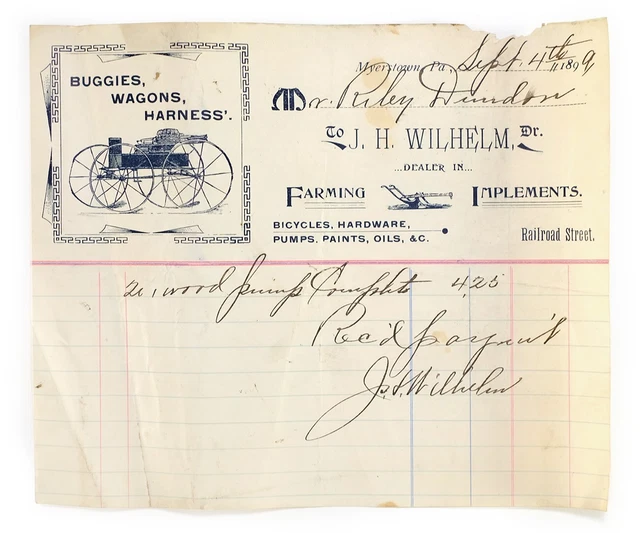 BUGGIES,
WAGONS,
HARNESS'.
Myerstown, Pa., Sept. 4th 1899
Mr. Riley Dundon
To J. H. WILHELM, Dr.
...DEALER IN...
FARMING IMPLEMENTS.
BICYCLES, HARDWARE,
PUMPS, PAINTS, OILS, &C.
Railroad Street.
1 wood pump Complete 4.25
Rec'd paym't
J. H. Wilhelm